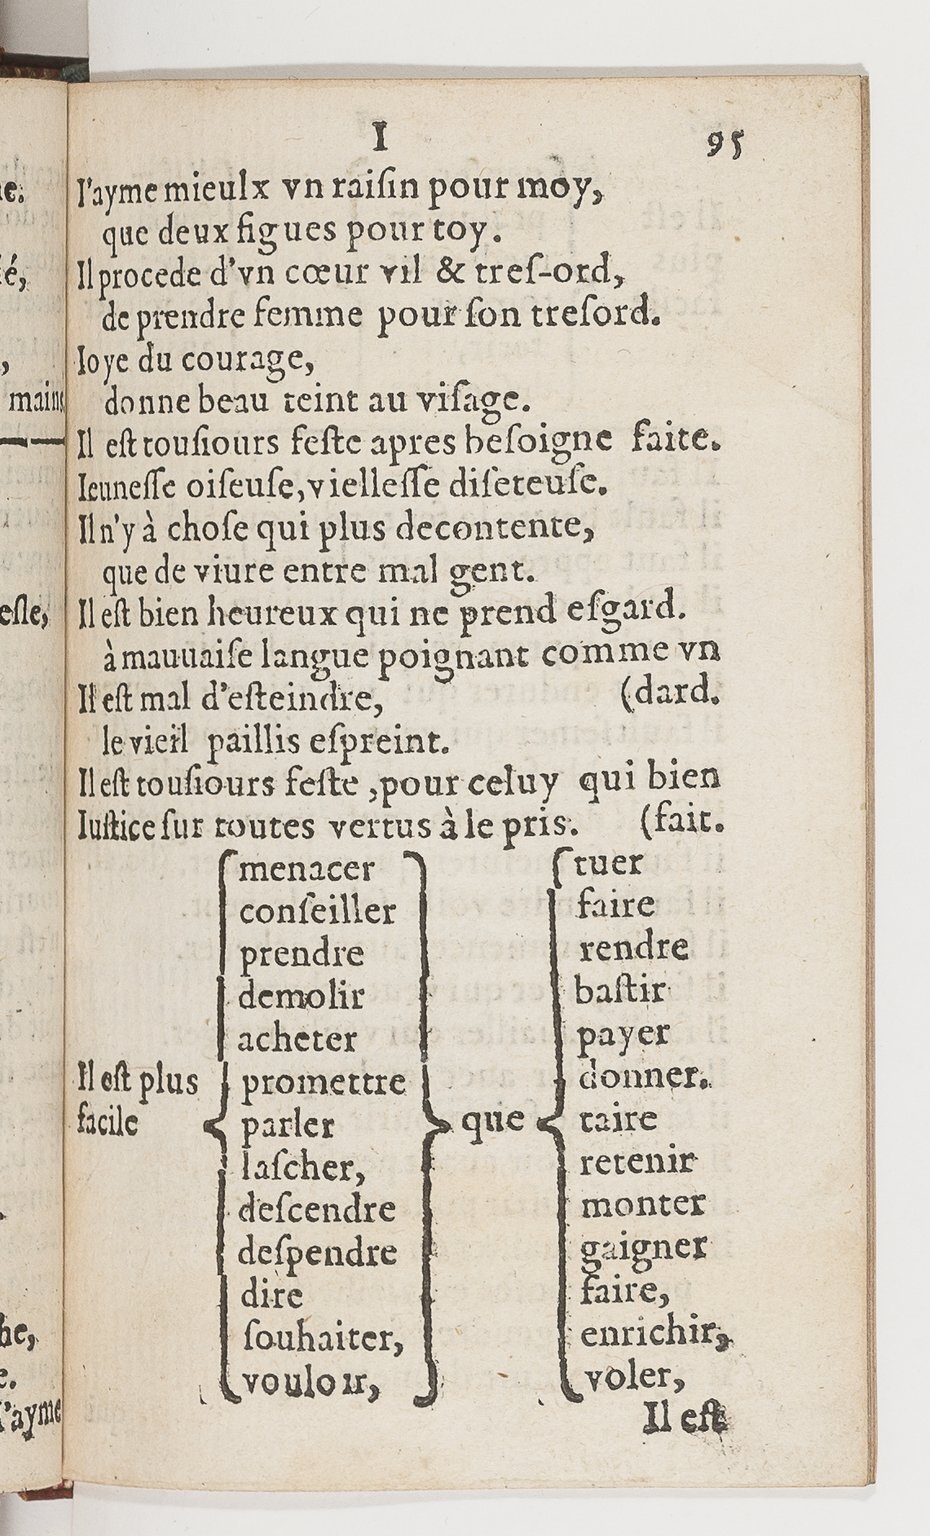 I 95
I'ayme mieulx vn raiſin pour moy,
que deux figues pour toy.
Il procede d'vn cœur vil & treſ-ord,
de prendre femme pour ſon treſord.
Ioye du courage,
donne beau teint au viſage.
Il eſt touſiours feſte apres beſoigne faite.
Ieuneſſe oiſeuſe, vielleſſe diſeteuſe.
Il n'y à choſe qui plus decontente,
que de viure entre mal gent.
Il eſt bien heureux qui ne prend eſgard.
à mauuaiſe langue poignant comme vn
Il eſt mal d'eſteindre, (dard.
le vieil paillis eſpreint.
Il eſt touſiours feſte, pour celuy qui bien
Iuſtice ſur toutes vertus à le pris. (fait.
menacer tuer
conſeiller faire
prendre rendre
demolir baſtir
acheter payer
Il eſt plus promettre donner.
facile parler que taire
laſcher, retenir
deſcendre monter
deſpendre gaigner
dire faire,
ſouhaiter, enrichir,
vouloir, voler,
Il eſt
mains
eſle,
he,
I'ayme